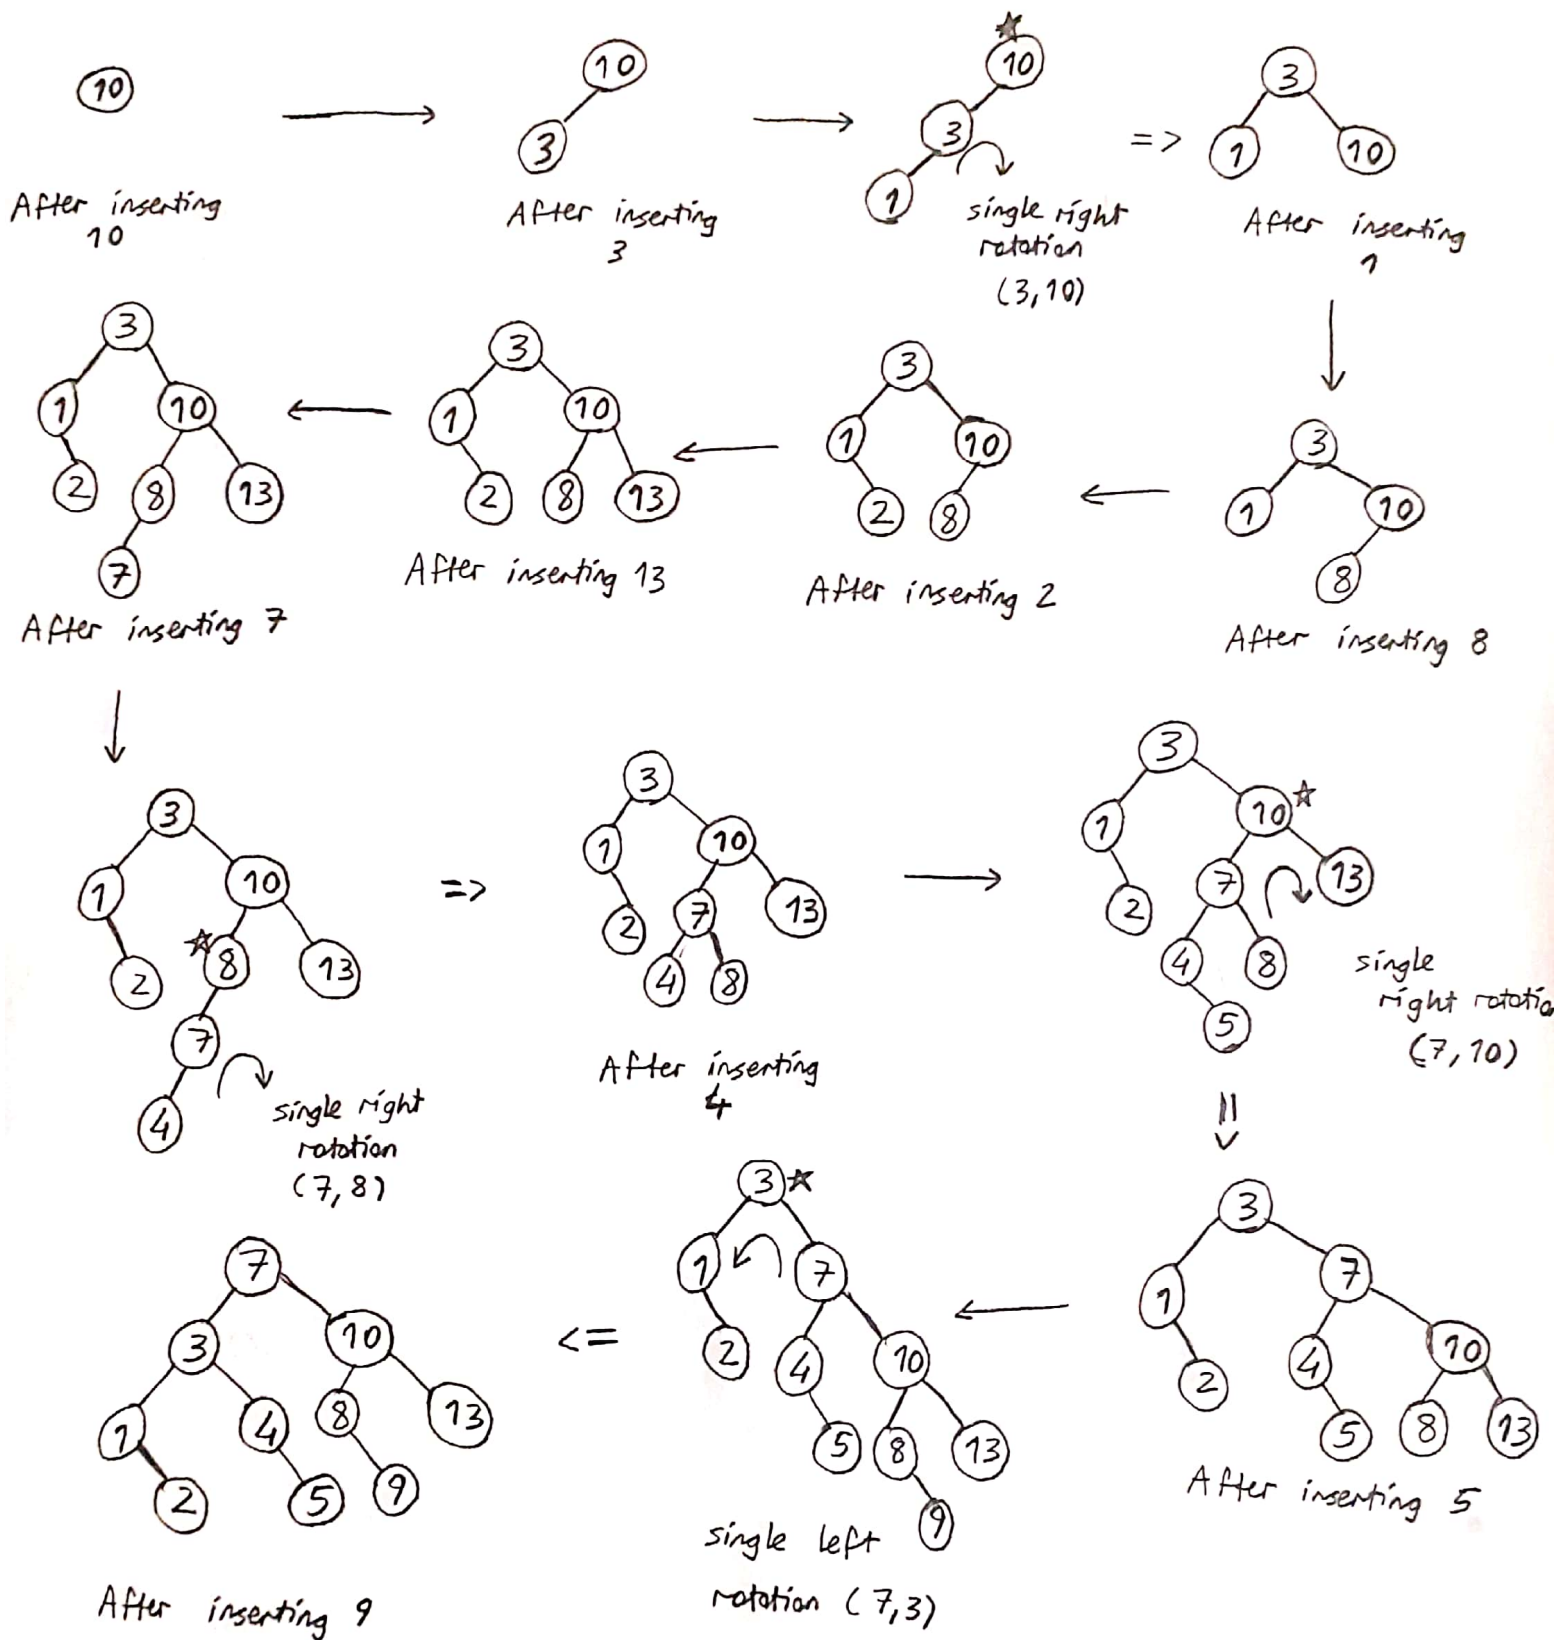 10
After inserting
10
10
3
After inserting
3
10
3
1
single right
rotation
(3,10)
=>
3
1
10
After inserting
1
3
1
10
8
After inserting 8
3
1
10
2
8
After inserting 2
3
1
10
2
8
13
After inserting 13
3
1
10
2
8
13
7
After inserting 7
3
1
10
2
8
13
7
4
single right
rotation
(7,8)
=>
3
1
10
2
7
13
4
8
After inserting
4
3
1
10
2
7
13
4
8
5
single
right rotatio
(7,10)
3
1
7
2
4
10
5
8
13
After inserting 5
3
1
7
2
4
10
5
8
13
9
single left
rotation (7,3)
<=
7
3
10
1
4
8
13
2
5
9
After inserting 9